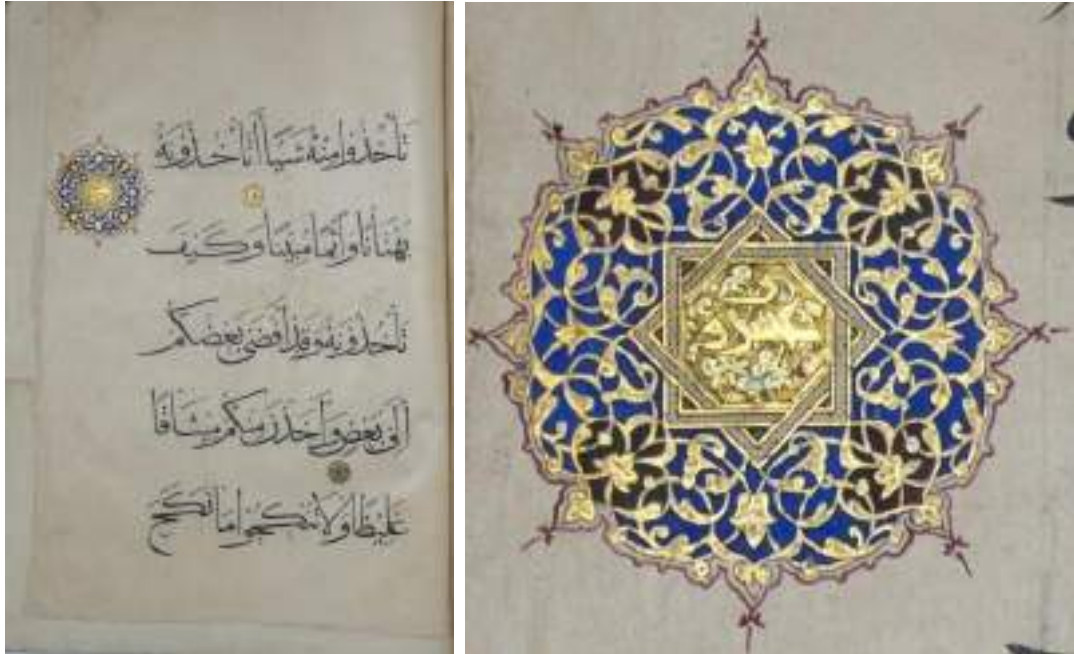 تأخذوا منه شيئا أتأخذونه
بهتانا وإثما مبينا وكيف
تأخذونه وقد أفضى بعضكم
إلى بعض وأخذن منكم ميثاقا
غليظا ولا تنكحوا ما نكح